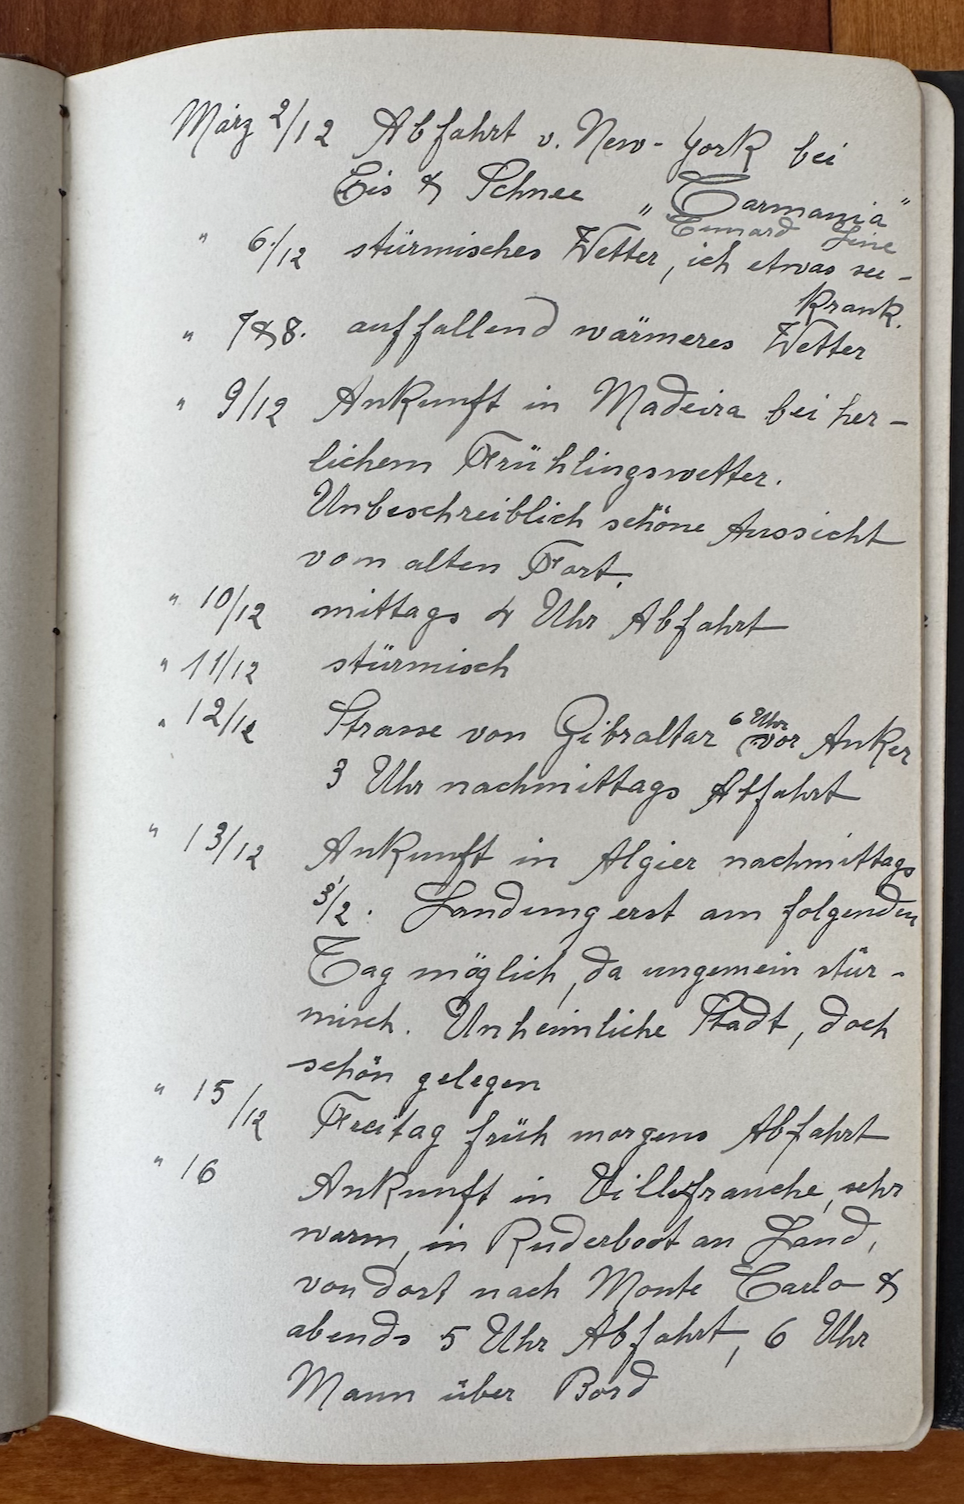 März 2/12 Abfahrt v. New-York bei
Eis & Schnee „Carmania"
Cunard Line
" 6./12 stürmisches Wetter, ich etwas see-
krank.
" 7&8. auffallend wärmeres Wetter
" 9/12 Ankunft in Madeira bei her-
lichem Frühlingswetter.
Unbeschreiblich schöne Aussicht
vom alten Fort.
" 10/12 mittags 4 Uhr Abfahrt
" 11/12 stürmisch
" 12/12 Strasse von Gibraltar 6 Uhr vor Anker
3 Uhr nachmittags Abfahrt
" 13/12 Ankunft in Algier nachmittags
3/2. Landung erst am folgenden
Tag möglich, da ungemein stür-
misch. Unheimliche Stadt, doch
schön gelegen
" 15/12 Freitag früh morgens Abfahrt
" 16 Ankunft in Villefranche, sehr
warm, in Ruderboot an Land,
von dort nach Monte Carlo &
abends 5 Uhr Abfahrt, 6 Uhr
Mann über Bord